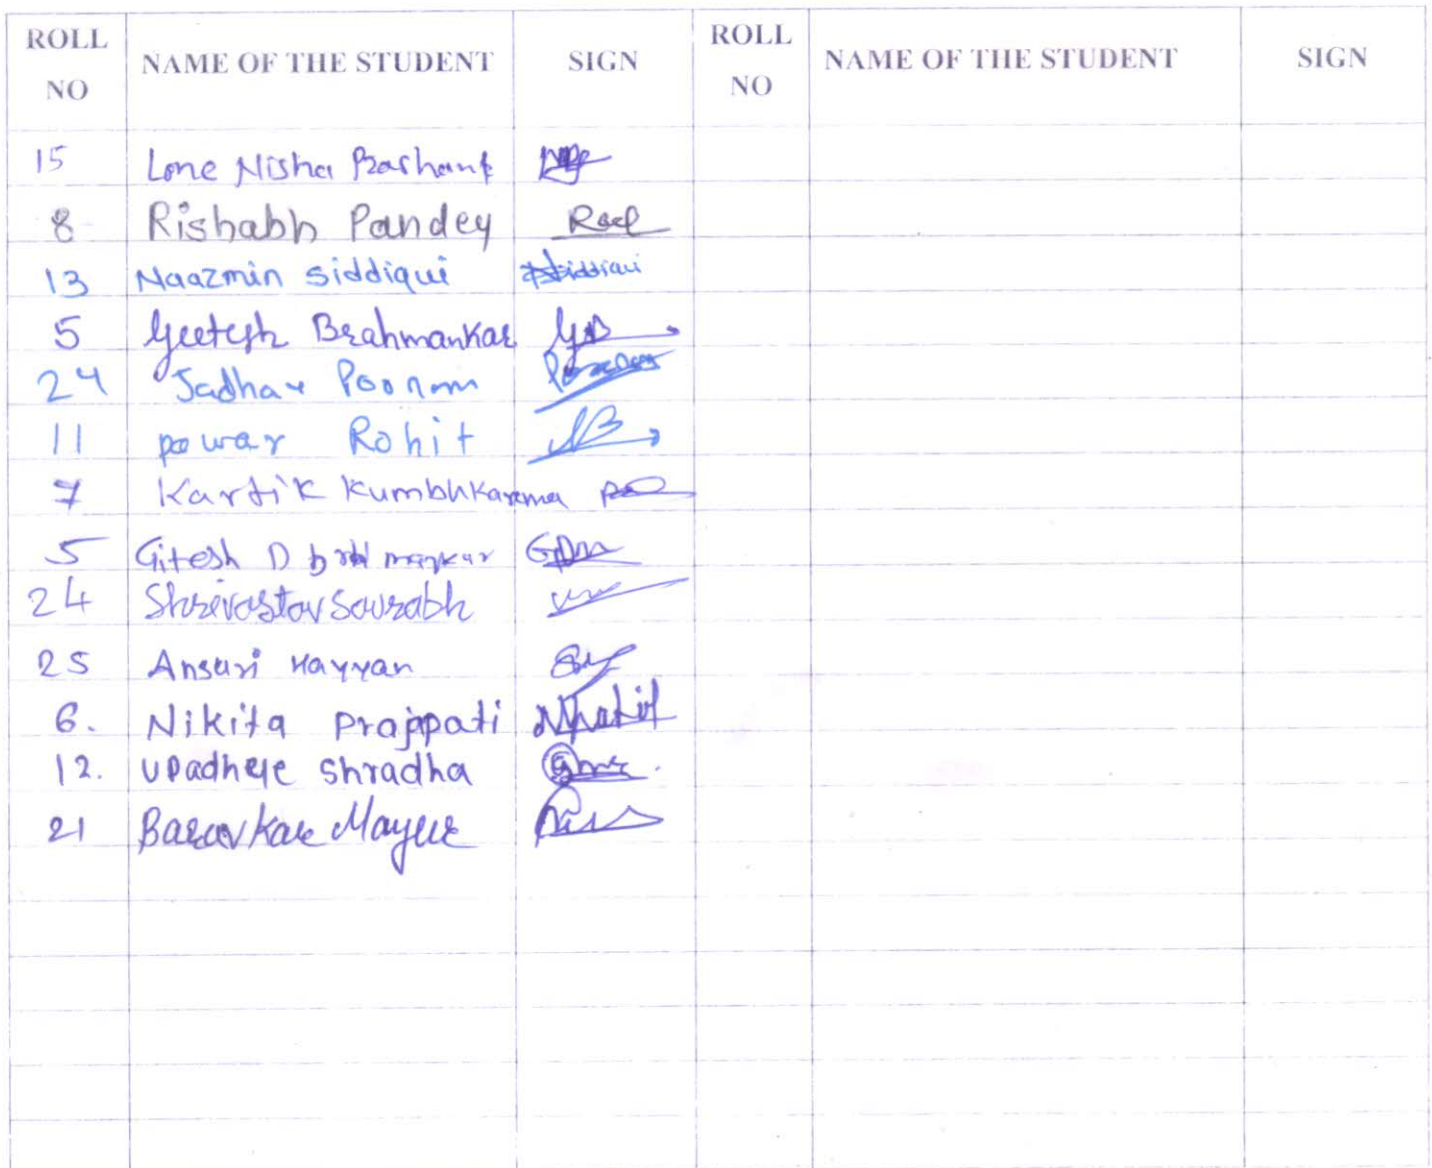 ROLL NO NAME OF THE STUDENT SIGN ROLL NO NAME OF THE STUDENT SIGN
15 Lone Nisha Prashant
8 Rishabh Pandey
13 Naazmin Siddiqui Siddiqui
5 Geetesh Brahmankar
24 Jadhav Poonam
11 powar Rohit
7 Kartik Kumbhkar
5 Gitesh D
24 Shrivastav Sourabh
25 Ansari Hayyan
6. Nikita Prajapati
12. Upadhye Shradha
21 Baravkar Mayur